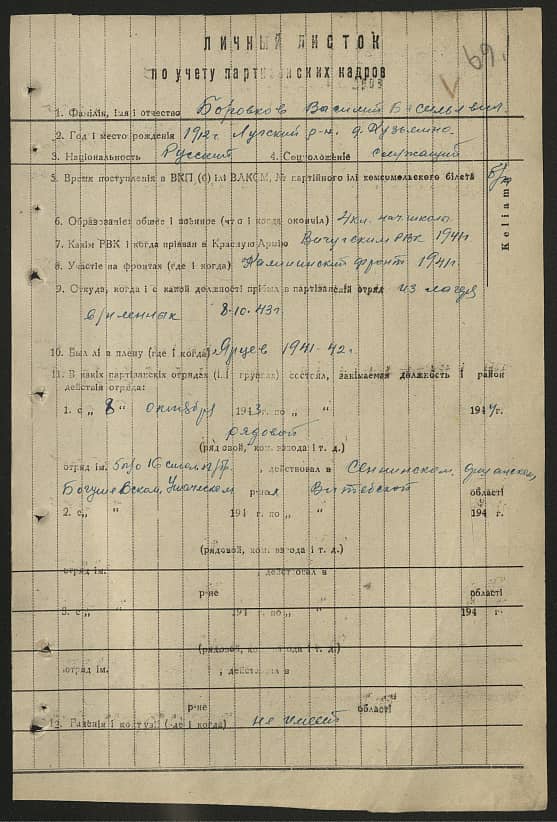 69.
ЛИЧНЫЙ ЛИСТОК
по учету партизанских кадров
1. Фамілія, імя і отчество Боровков Василий Васильевич.
2. Год і место рождения 1912г. Лугский р-н. д. Кузьмино.
3. Национальность Русский 4. Соцположение служащий
5. Время поступления в ВКП (б) ілі ВЛКСМ, № партійного ілі комсомольского білета б/п
6. Образование: общее і военное (что і когда окончіл) 4 кл. нач. школы
7. Какім РВК і когда прізван в Красную Армію РВК 1941г
8. Участіе на фронтах (где і когда) Калининский фронт 1941г.
9. Откуда, когда і с какой должності прібыл в партізанскій отряд из лагеря
8-10. 43г.
10. Был лі в плену (где і когда) Ярцев 1941-42г.
11. В какіх партізанскіх отрядах (і. і группах) состоял, занімаемая должность і район
действія отряда:
1. с „ 8 “ октября 1943г. по „ “ 194 4 г.
рядовой
(рядовой, ком. взвода і т. д.)
отряд ім. 16 , действовал в Сеннинском,
р-нах Витебской області
2. с „ “ 194 г. по „ “ 194 г.
(рядовой, ком. взвода і т. д.)
отряд ім. , действовал в
р-не області
3. с „ “ 194 г. по „ “ 194 г.
(рядовой, ком. взвода і т. д.)
отряд ім. , действовал в
р-не області
12. Ранения і контузіі (где і когда) не имеет
Keliama